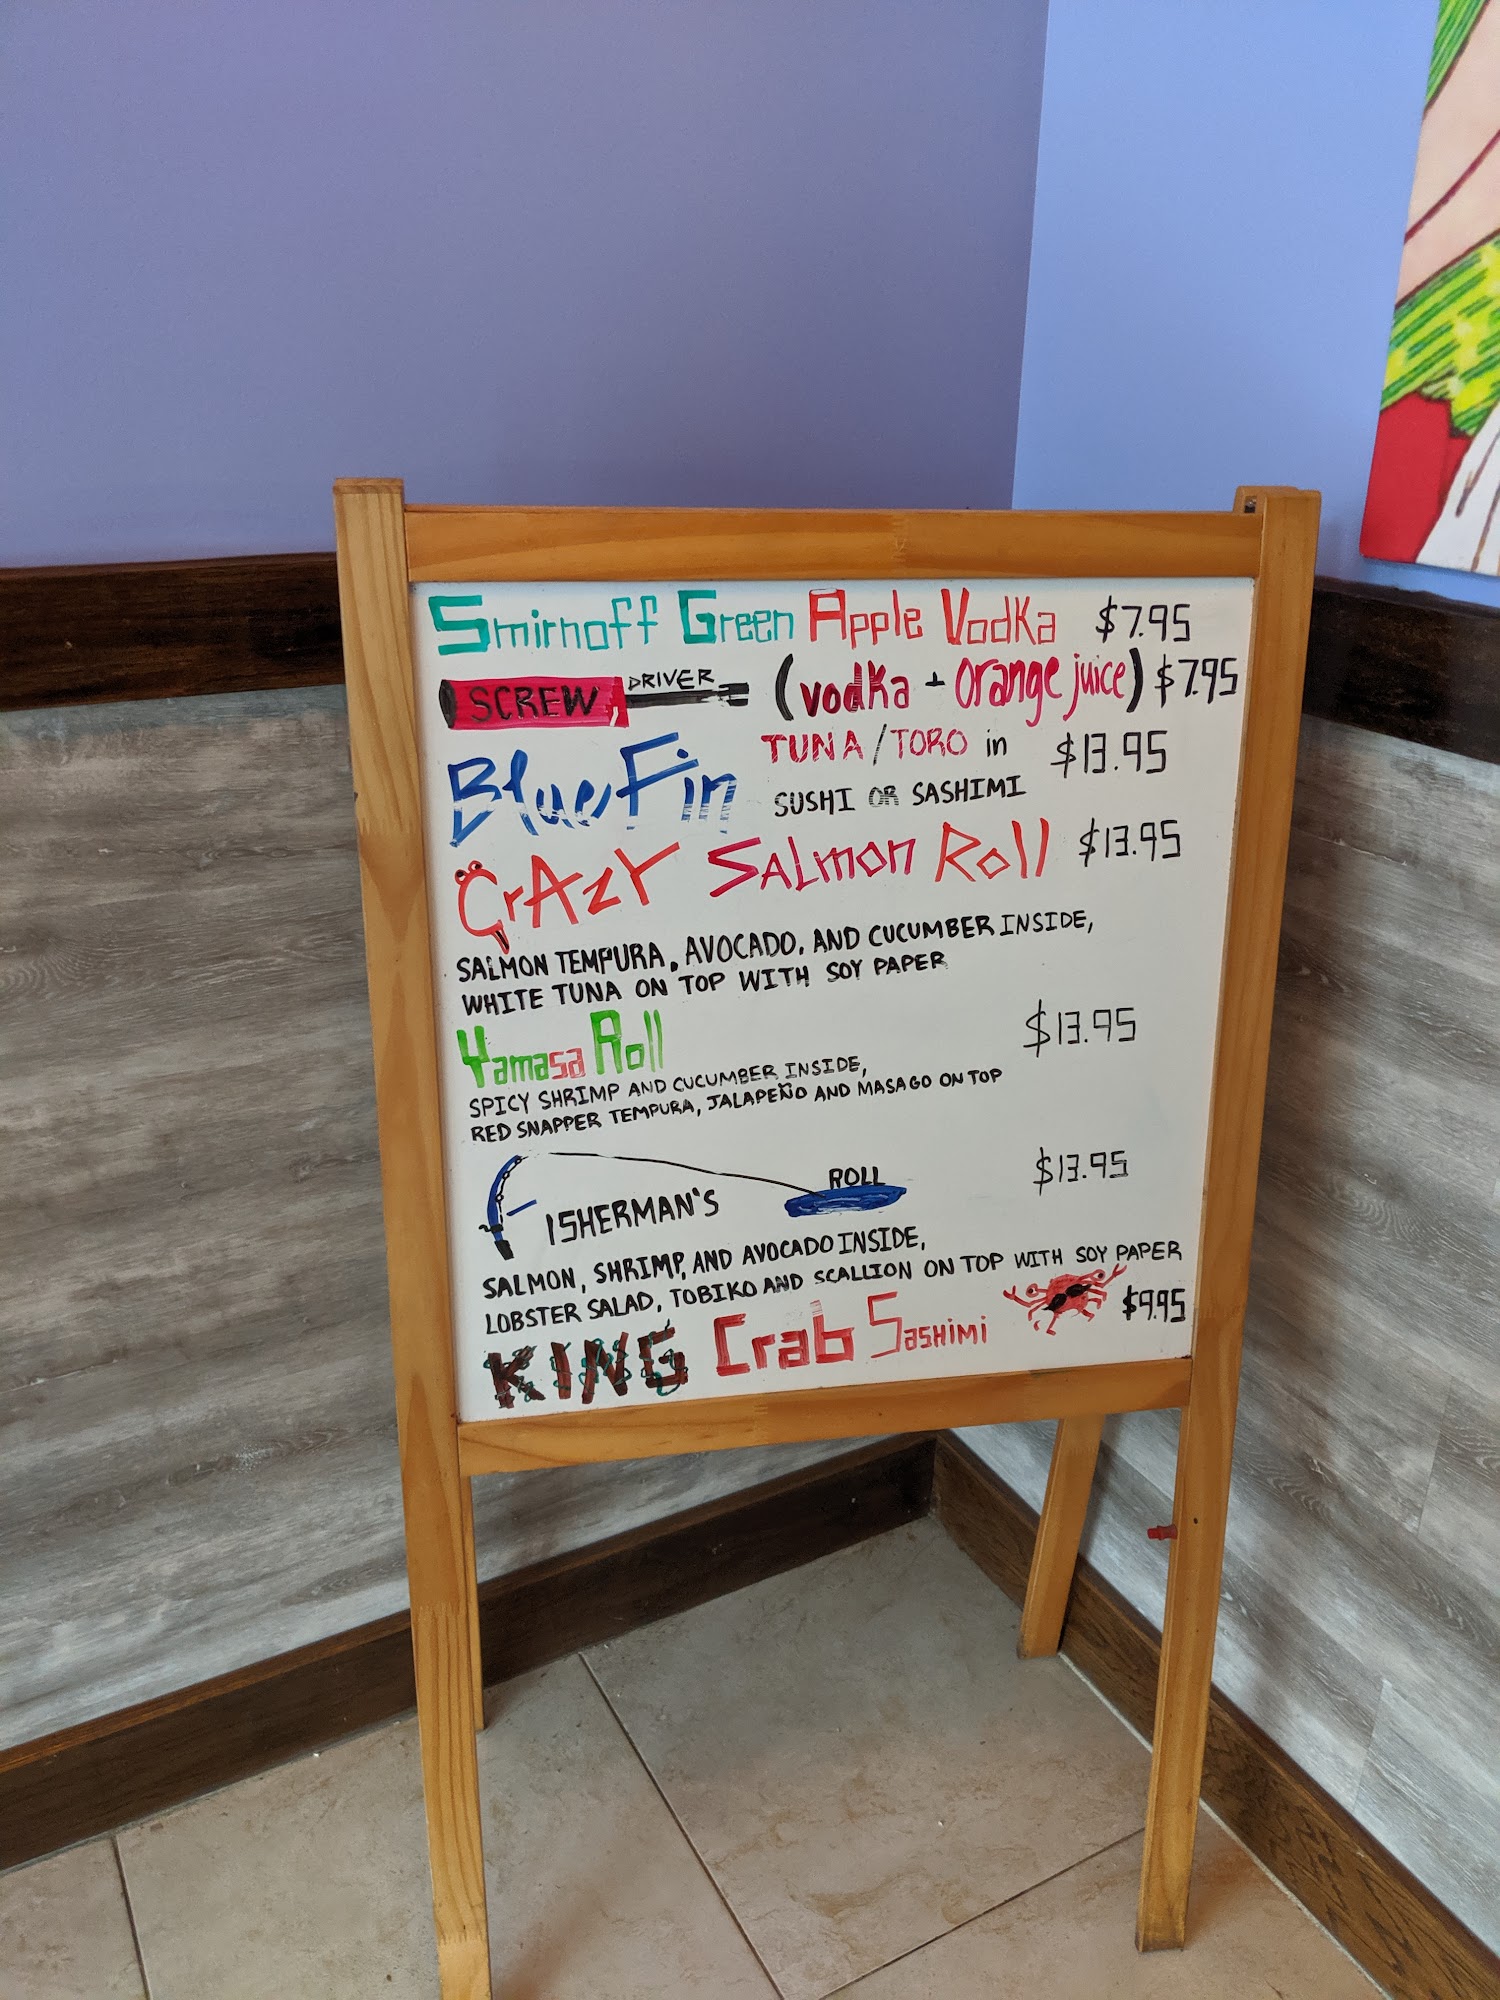 Smirnoff Green Apple Vodka $7.95
SCREW DRIVER (vodka + orange juice) $7.95
Blue Fin TUNA/TORO in $13.95
SUSHI OR SASHIMI
CrAzY SALmon Roll $13.95
SALMON TEMPURA, AVOCADO, AND CUCUMBER INSIDE,
WHITE TUNA ON TOP WITH SOY PAPER
Yamasa Roll $13.95
SPICY SHRIMP AND CUCUMBER INSIDE,
RED SNAPPER TEMPURA, JALAPEÑO AND MASAGO ON TOP
FISHERMAN'S ROLL $13.95
SALMON, SHRIMP, AND AVOCADO INSIDE,
LOBSTER SALAD, TOBIKO AND SCALLION ON TOP WITH SOY PAPER
KING Crab SASHIMI $9.95